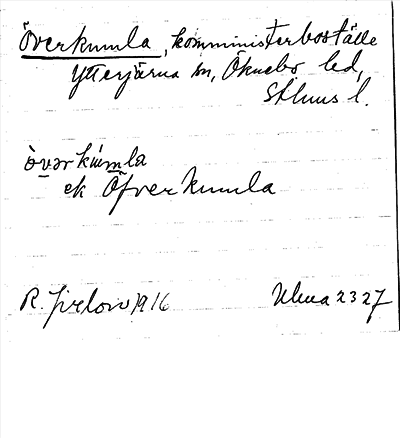 Överkumla, komministerboställe
Ytterjärna sn, Öknebo hd,
Sthlms l.
òvərkúmla
ek Öfverkumla
R. Jirlow 1916 Ulma 2327